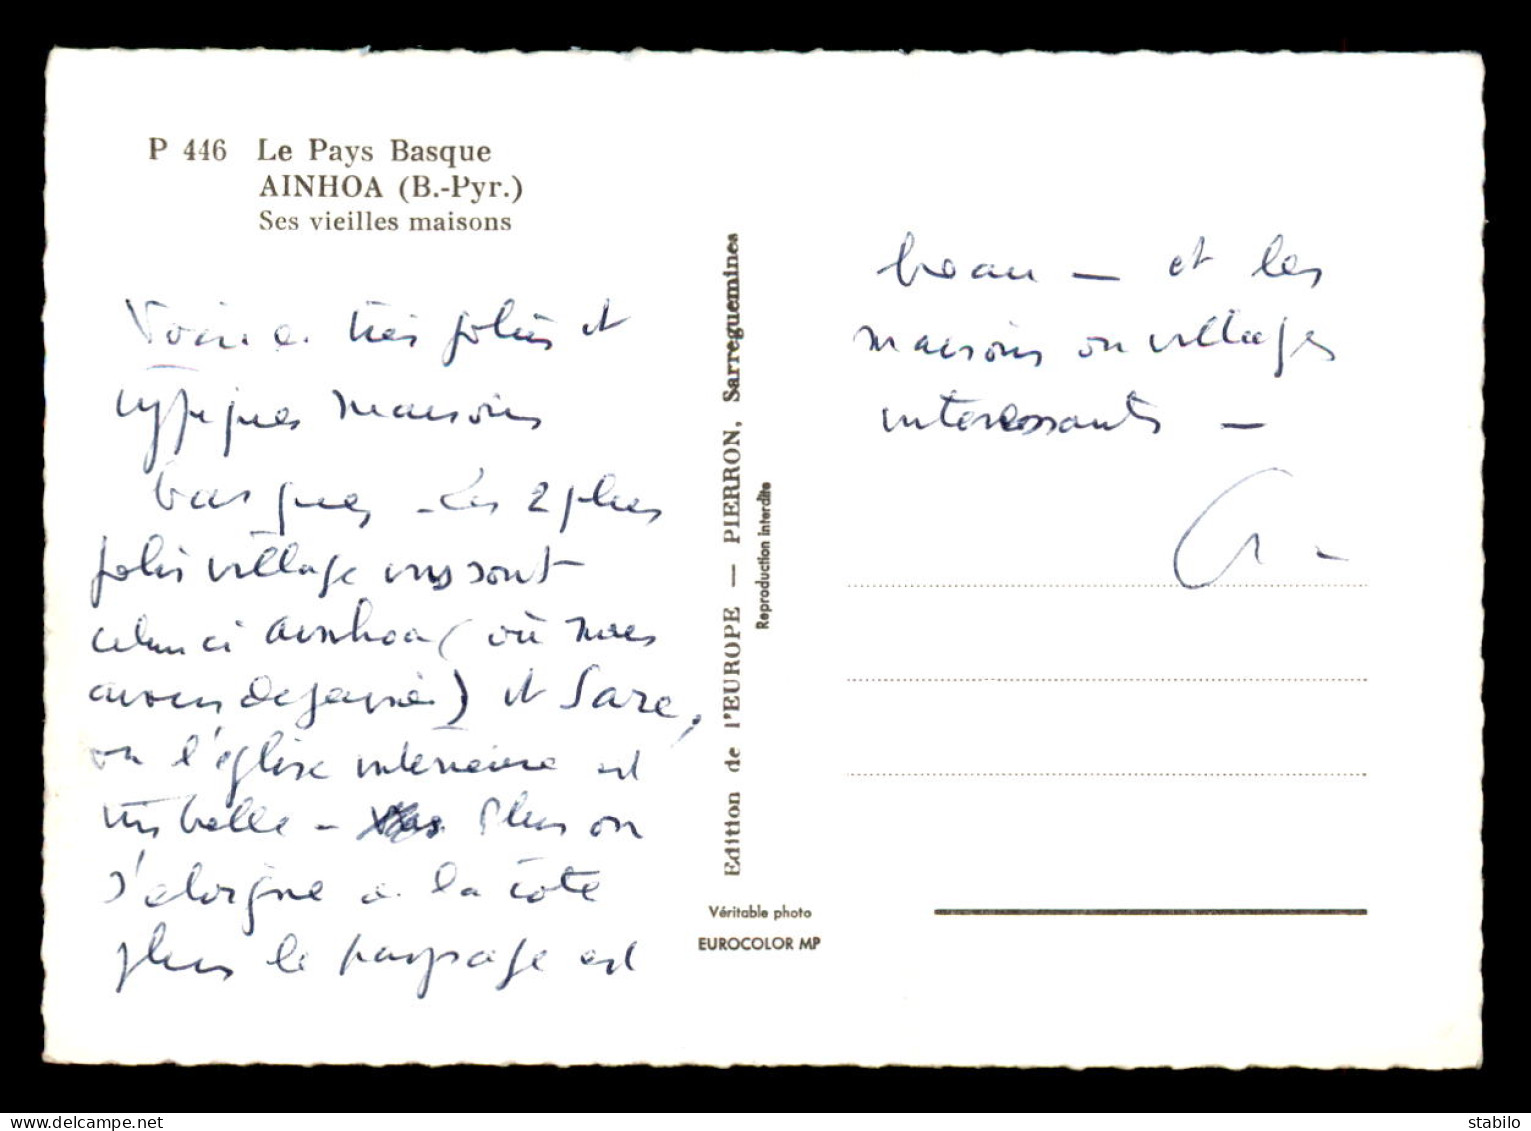 P 446 Le Pays Basque
AINHOA (B.-Pyr.)
Ses vieilles maisons
très jolies et
typiques maisons
basques - Les 2 plus
jolis village vus sont
celui ci Ainhoa (où nous
avons déjeuné) et Sare,
où l'église intérieure est
très belle - Plus on
s'eloigne de la côte
plus le paysage est
beau - et les
maisons ou villages
interessants -
Edition de l'EUROPE — PIERRON, Sarreguemines
Reproduction interdite
Véritable photo
EUROCOLOR MP
delcampe.net
stabilo